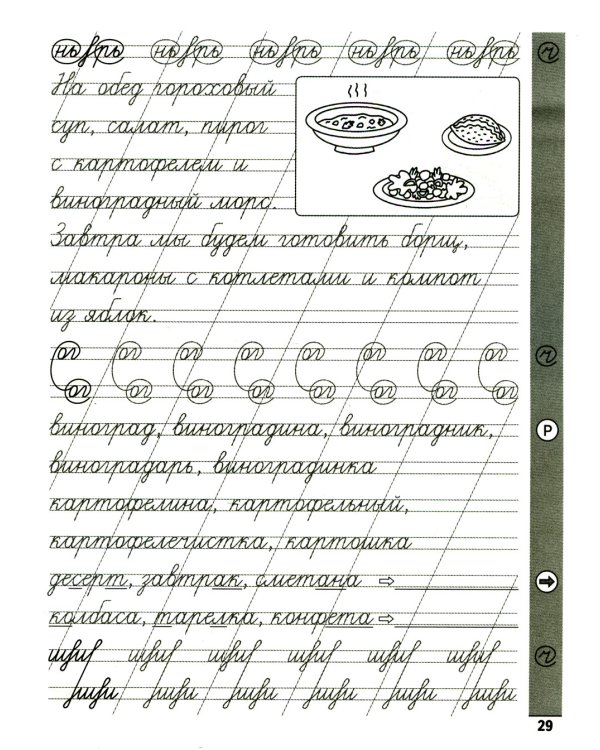 нь рь нь рь нь рь нь рь нь рь
На обед гороховый
суп, салат, пирог
с картофелем и
виноградный морс.
Завтра мы будем готовить борщ,
макароны с котлетами и компот
из яблок.
ог ог ог ог ог ог ог ог
ог ог ог ог ог ог ог ог
виноград, виноградина, виноградник,
виноградарь, виноградинка
картофелина, картофельный,
картофелечистка, картошка
Р
десерт, завтрак, сметана ⇨
колбаса, тарелка, конфета ⇨
29